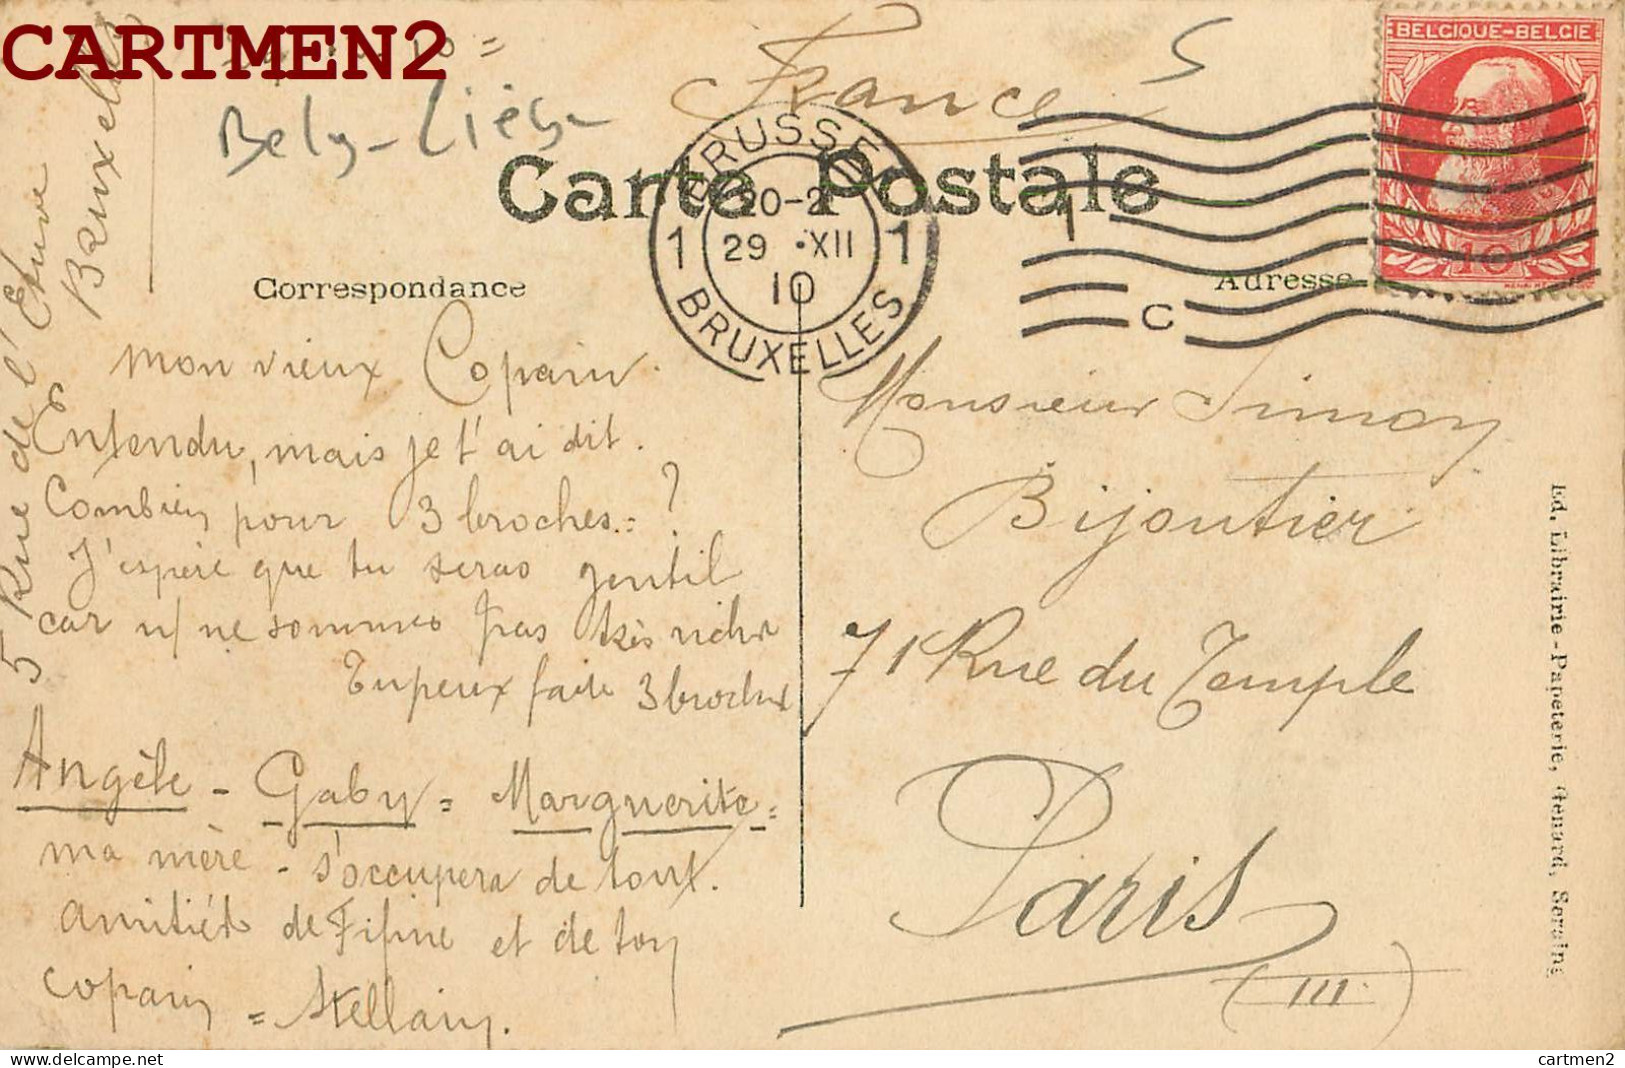 CARTMEN2
Belg-Liège
France
BELGIQUE-BELGIE
10
Carte Postale
BRUSSEL
20-2
1 29 •XII 1
10
BRUXELLES
1
C
Correspondance
Adresse
5 Rue de l'Etuve
Bruxelles
mon vieux Copain.
Entendu, mais je t'ai dit.
Combien pour 3 broches.= ?
J'espère que tu seras gentil
car n/ ne sommes pas très riches
Tu peux faite 3 broches
Angèle - Gaby = Marguerite =
ma mère - s'occupera de tout.
amitiés de Fifine et de ton
copain = Stellain.
Monsieur Simon
Bijoutier
71 Rue du Temple
Paris
(III)
Ed. Librairie-Papeterie, Génard, Seraing
cartmen2
delcampe.net
cartmen2